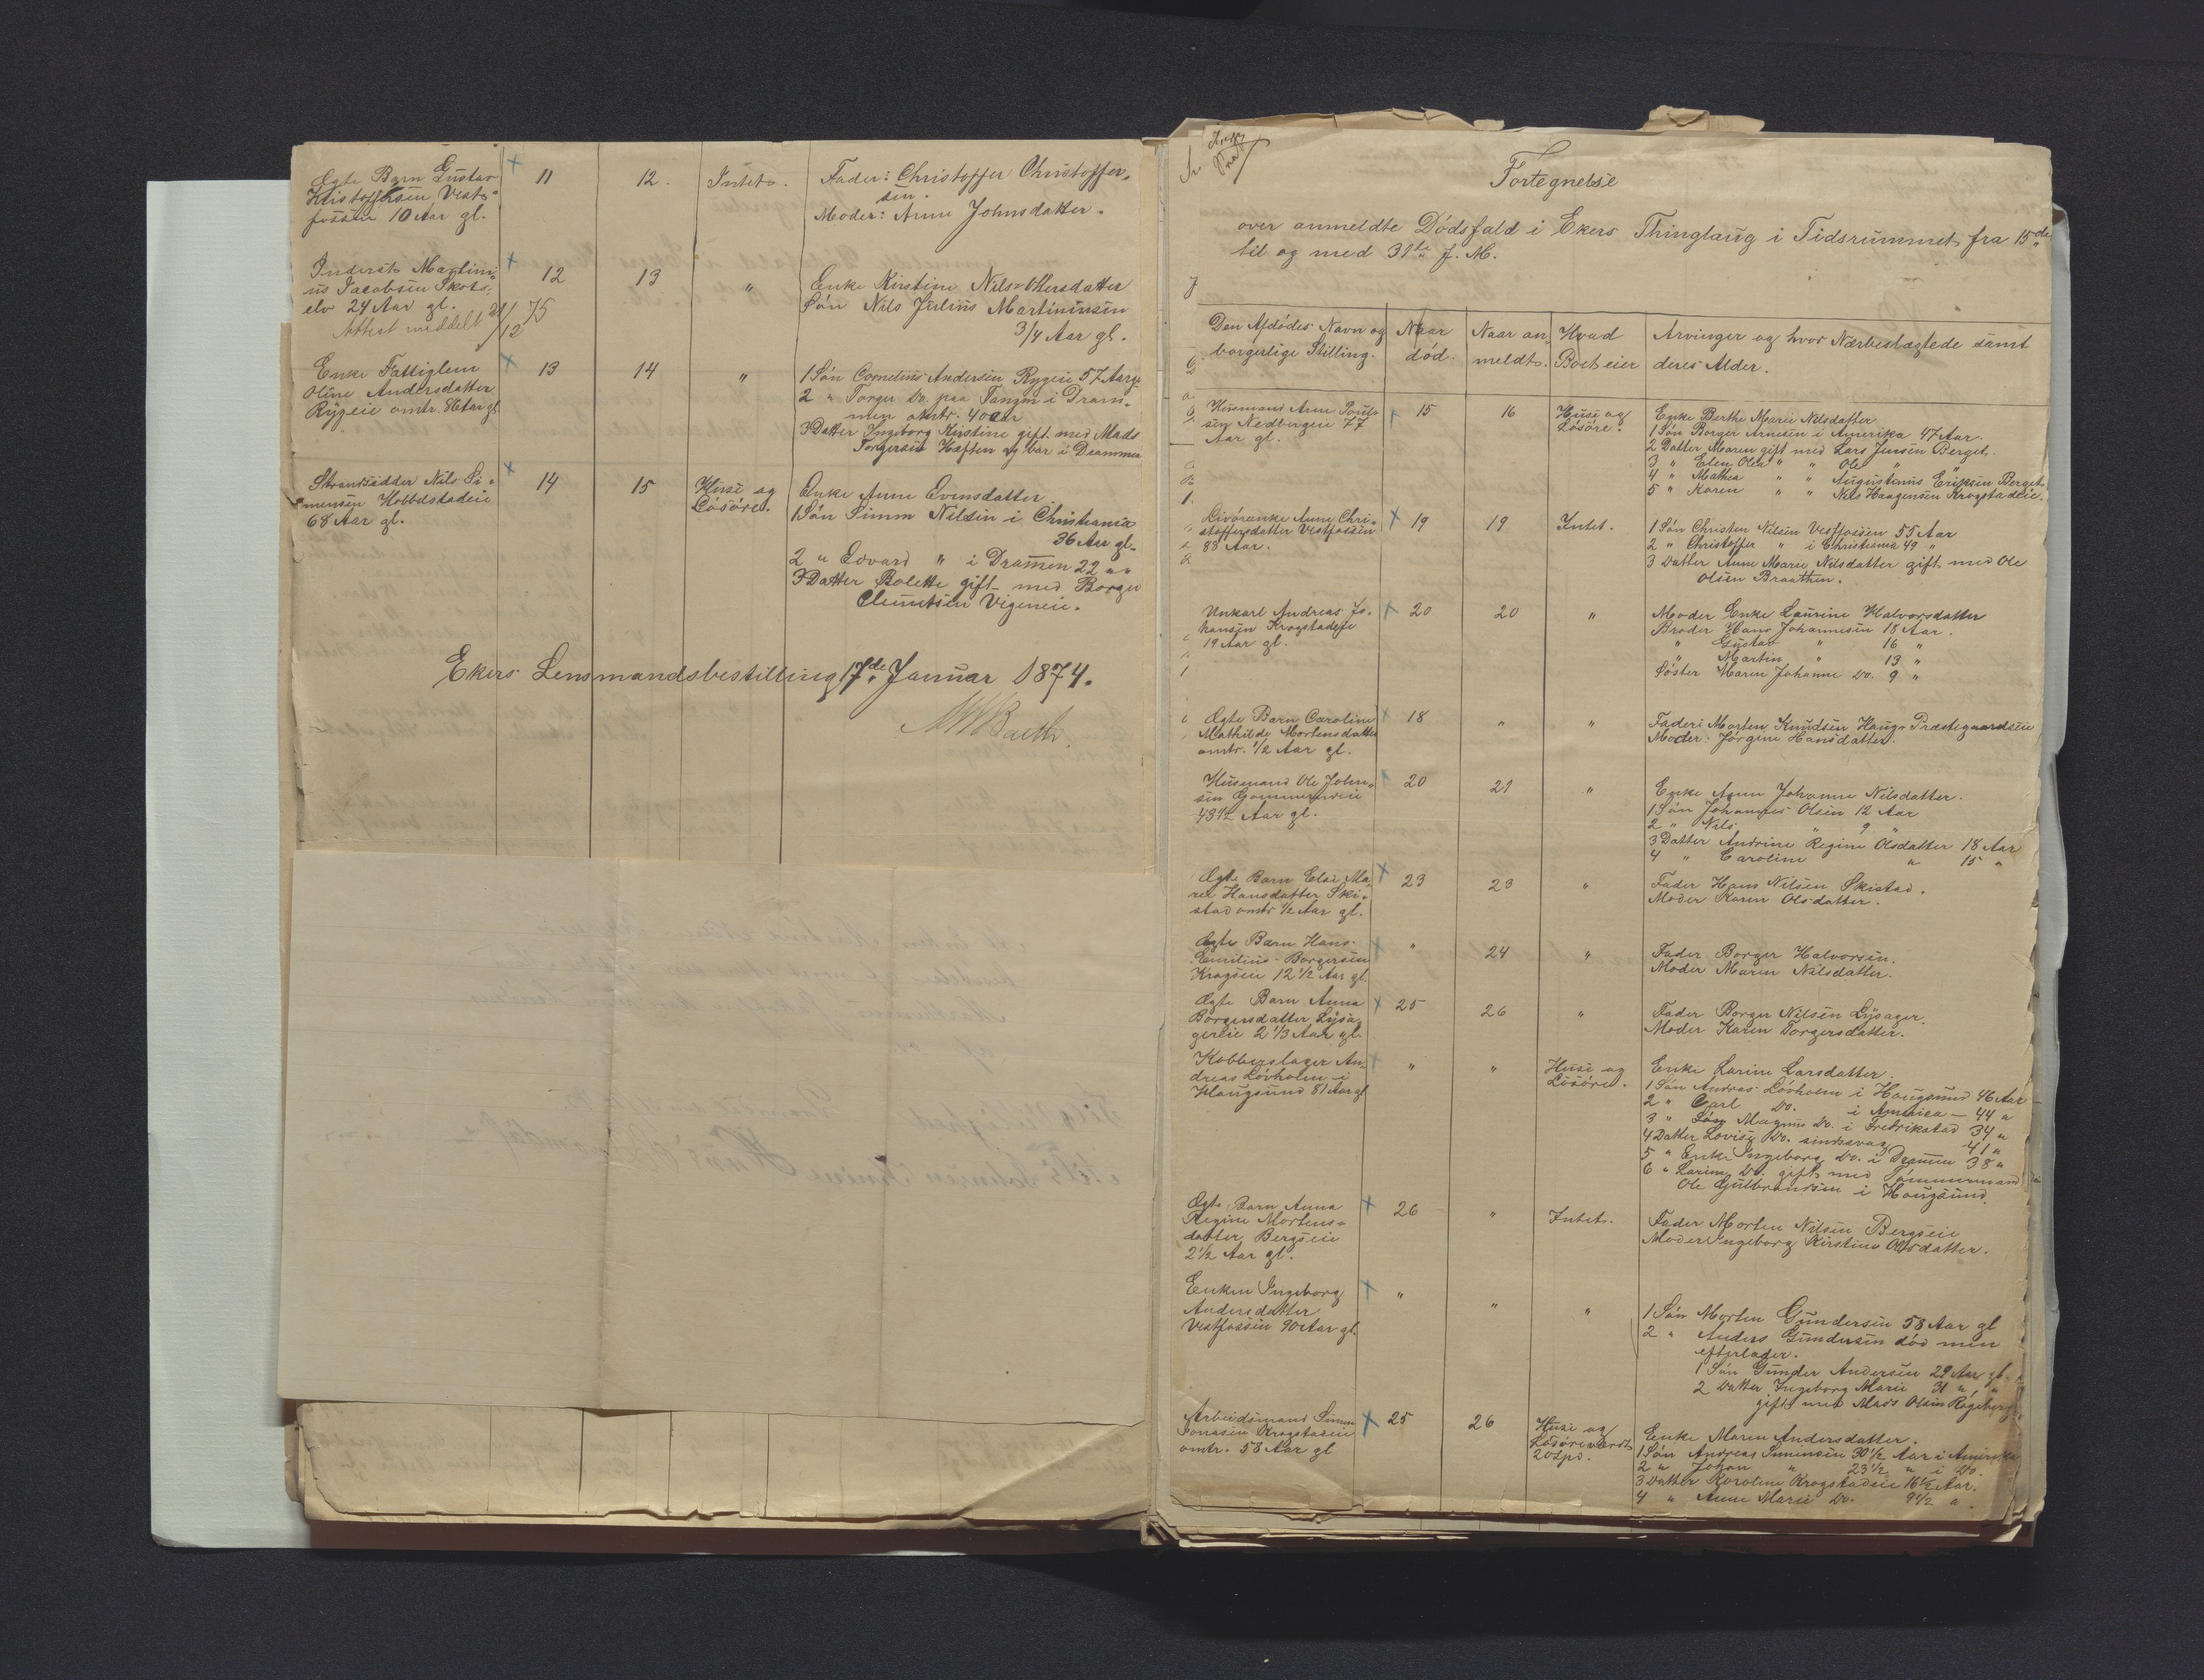 Ægte Barn Gustav
Kristoffersen Vest-
fossen 10 Aar gl.
11
12.
Intet.
Fader: Christoffer Christoffer-
sen.
Moder: Anne Johnsdatter.
Inderst Martini-
us Jacobsen Skots-
elv 24 Aar gl.
Attest meddelt 21/12 75
12
13
"
Enke Kirstine Nils-Ottersdatter
Søn Nils Julius Martiniusen
3/4 Aar gl.
Enke Fattiglem
Oline Andersdatter
Rygeie omtr. 86 Aar gl.
13
14
"
1 Søn Cornelius Andersen Rygeie 57 Aar gl.
2 " Torger Do. paa Tangen i Dram-
men omtr. 40 Aar
3 Datter Ingeborg Kirstine gift med Mads
Torgersen Hæften og bor i Drammen
Strandsidder Nils Si-
mensen Hobbelstadeie
68 Aar gl.
14
15
Huse og
Løsøre.
Enke Anne Evensdatter
1 Søn Simen Nilsen i Christiania
36 Aar gl.
2 " Edvard " i Dramen 22 " "
3 Datter Bolette gift med Borger
Clemetsen Vigeneie.
Ekers Lensmandsbestilling 17de Januar 1874.
Fortegnelse
over anmeldte Dødsfald i Ekers Thinglaug i Tidsrummet fra 15de
til og med 31te f. M.
Den Afdødes Navn og
borgerlige Stilling.
Naar
død.
Naar an-
meldt.
Hvad
Boet eier
Arvinger og hvor Nærbeslægtede samt
deres Alder.
Husmand Arne Poul-
sen Nedbergeie 77
Aar gl.
15
16
Huse og
Løsøre.
Enke Berthe Marie Nilsdatter
1 Søn Borger Arnesen i Amerika 47 Aar.
2 Datter Maren gift med Lars Jensen Berget.
3 " Elen Olea " " Ole " "
4 " Mathea " " Augustinus Eriksen Berget.
5 " Karen " " Nils Haagensen Krogstadeie.
Livøreenke Anne Chri-
stoffersdatter Vestfossen
88 Aar.
19
19
Intet.
1 Søn Christen Nilsen Vestfossen 55 Aar
2 " Christoffer " i Christiania 49 "
3 Datter Anne Marie Nilsdatter gift med Ole
Olsen Braathen.
Unkarl Andreas Jo-
hansen Krogstadeie
19 Aar gl.
20
20
"
Moder Enke Laurine Halvorsdatter
Broder Hans Johannesen 18 Aar.
" Gustav " 16 "
" Martin " 13 "
Søster Maren Johanne Do. 9 "
Ægte Barn Caroline
Mathilde Mortensdatter
omtr. 1/2 Aar gl.
18
"
"
Fader: Morten Knudsen Haugs Præstegaardseie
Moder: Jørgine Hansdatter.
Husmand Ole John-
sen Gommerudeie
43 1/2 Aar gl.
20
21
"
Enke Anne Johanne Nilsdatter.
1 Søn Johannes Olsen 12 Aar
2 " Nils " 9 "
3 Datter Andrine Regine Olsdatter 18 Aar
4 " Caroline " 15 "
Ægte Barn Else Ma-
rie Hansdatter Ski-
stad omtr 1/2 Aar gl.
23
23
"
Fader Hans Nilsen Skistad.
Moder Karen Olsdatter.
Ægte Barn Hans
Emilius Borgersen
Kragseie 12 1/2 Aar gl
"
24
"
Fader Borger Halvorsen.
Moder Maren Nilsdatter.
Ægte Barn Anna
Borgersdatter Lysa-
gereie 2 1/3 Aar gl.
25
26
"
Fader Borger Nilsen Lysager.
Moder Karen Torgersdatter.
Kobberslager An-
dreas Løvholm i
Haugsund 81 Aar gl
"
"
Huse og
Løsøre.
Enke Karine Larsdatter.
1 Søn Andreas Løvholm i Hougsund 46 Aar
2 " Carl Do. i America – 44 "
3 " Søn Magnus Do. i Fredrikstad 34 "
4 Datter Lovise Do. sindssvag 41 "
5 " Enke Ingeborg Do. i Dramen 38 "
6 " Karine Do. gift med Tømmermand
Ole Gulbrandsen i Hougsund.
Ægte Barn Anna
Regine Mortens-
datter Bergseie
2 1/2 Aar gl.
26
"
Intet.
Fader Morten Nilsen Bergseie
Moder Ingeborg Kirstine Olsdatter.
Enken Ingeborg
Andersdatter
Vestfossen 90 Aar gl.
"
"
"
1 Søn Morten Gundersen 58 Aar gl
2 " Anders Gundersen død men
efterlader.
1 Søn Gunder Andersen 29 Aar gl.
2 Datter Ingeborg Marie 31 " "
gift med Mads Olsen Røgeberg
Arbeidsmand Simen
Jonasen Krogstadeie
omtr. 58 Aar gl
25
26
Huse og
Løsøre værdt
20 Spd.
Enke Maren Andersdatter.
1 Søn Andreas Simensen 30 1/2 Aar i Amerika
2 " Johan " 23 1/2 " i Do.
3 Datter Karoline Krogstadeie 16 1/2 Aar.
4 " Anne Marie Do. 9 1/2 "